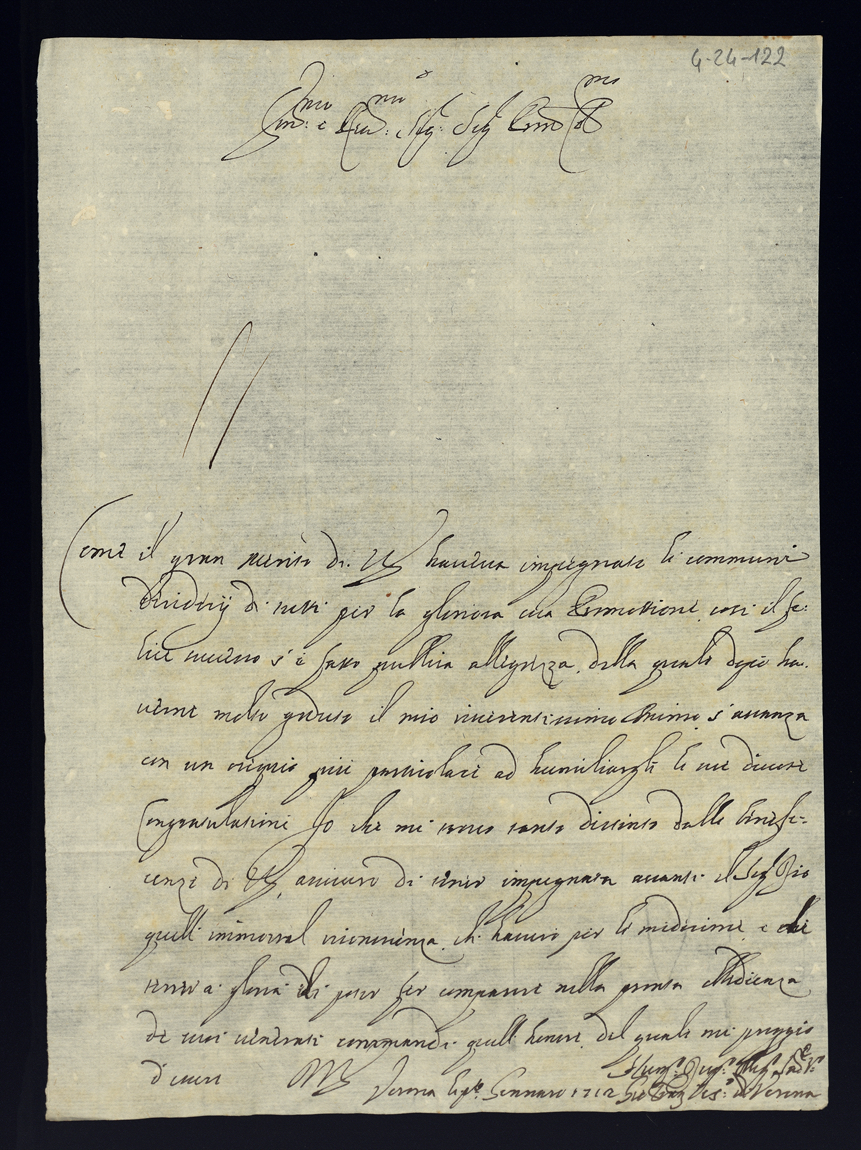 4-24-122
Em.mo e Rev.mo Sig.r Sig.r Pron Col.mo
Come il gran merito di V.E. haveva impegnate le communi
desiderij di tutti per la gloriosa sua Promottione, così il fe:
lice successo s'è fatto publica allegrezza, della quale dopo ha:
verne molto goduto il mio riverentissimo Animo s'avanza
con un ossequio più particolare ad humiliargli le sue divote
Congratulationi. Io che mi trovo tanto distinto dalle benefi:
cenze di V.E. di tener impegnata avanti il Sig.r Dio
quell'immortal riconoscenza, che haverò per le medesime, e che
terrò a gloria di poter far comparire nella pronta obbedienza
de suoi venerati commandi quell'honore, del quale mi preggio
d'essere
Verona Gennaro 1712
Hum.o Dev.mo
Ves.o di Verona